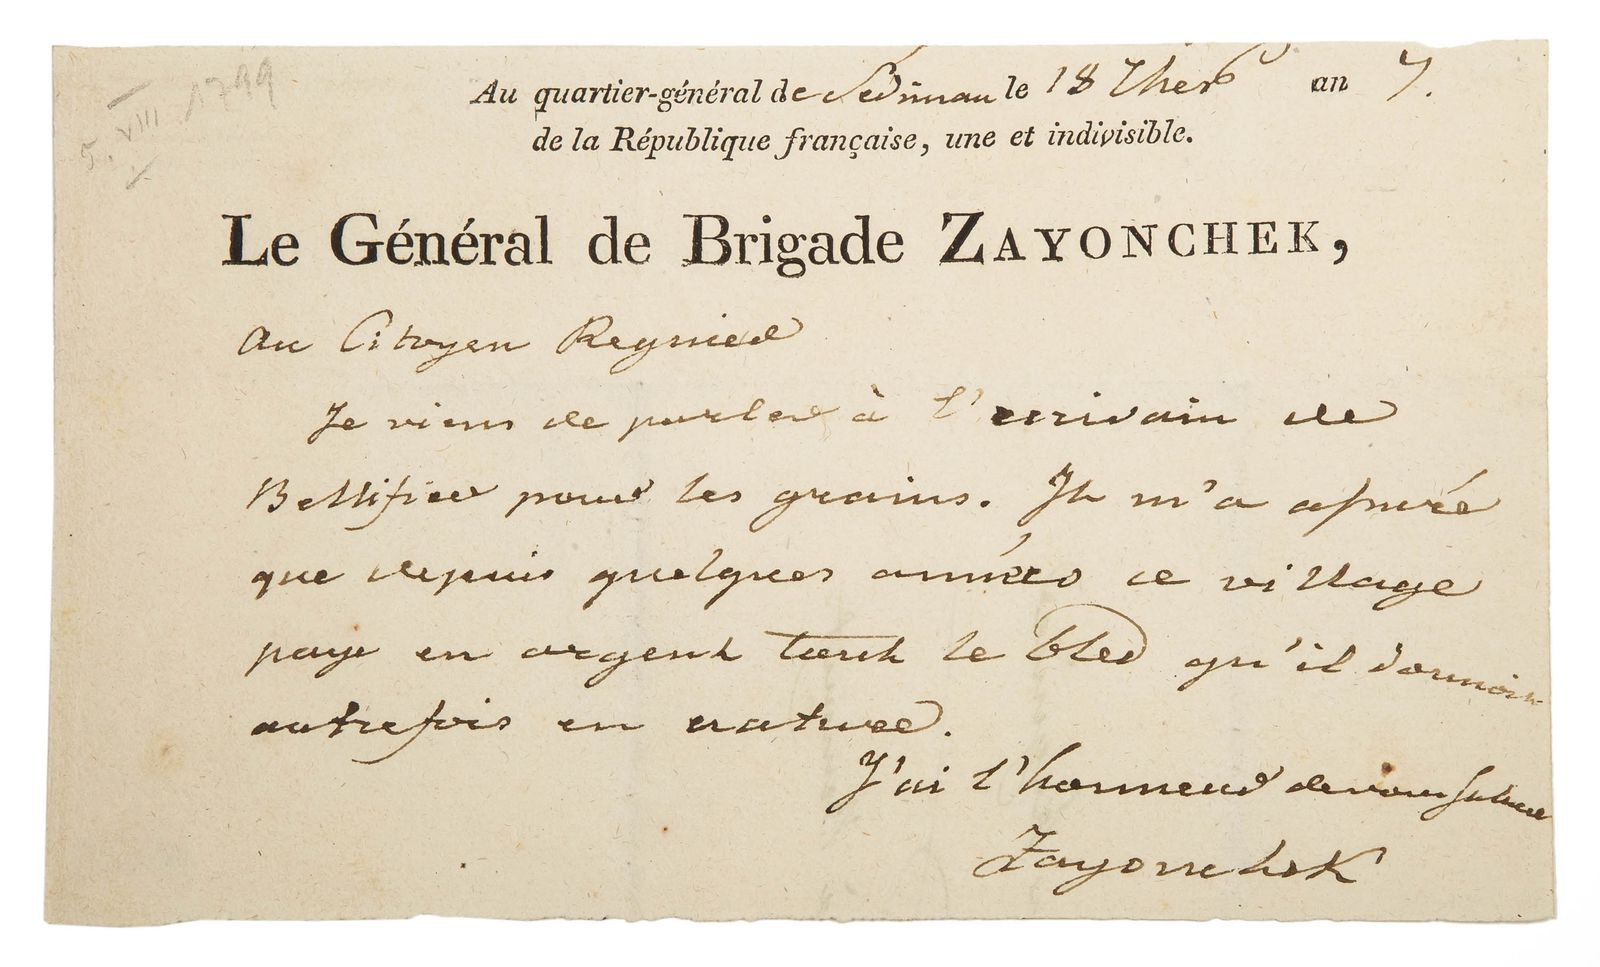 5. VIII 1799
Au quartier-général de Sediman le 18 Ther an 7.
de la République française, une et indivisible.
Le Général de Brigade ZAYONCHEK,
Au Citoyen Regnier
Je viens de parler à l'ecrivain de
pour les grains. Il m'a assuré
que depuis quelques années ce village
paye en argent tout le bled qu'il donnoit
autrefois en nature.
J'ai l'honneur de vous saluer
Zayonchek